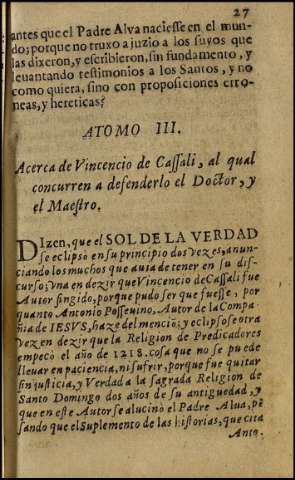 27
antes que el Padre Alva naciesse en el mun-
do; porque no truxo a juzio a los suyos que
las dixeron, y escribieron, sin fundamento, y
leuantando testimonios a los Santos, y no
como quiera, sino con proposiciones erro-
neas, y hereticas?
ATOMO III.
Acerca de Vincencio de Cassali, al qual
concurren a defenderlo el Doctor, y
el Maestro.
DIzen, que el SOL DE LA VERDAD
se eclipsò en su principio dos vezes, anun-
ciando los muchos que auia de tener en su dis-
curso; vna en dezir que Vincencio de Cassali fue
Autor fingido, porque pudo ser que fuesse, por
quanto Antonio Posseuino, Autor de la Compa-
ñia de IESVS, haze del menciò; y eclipsose otra
vez en dezir que la Religion de Predicadores
empecò el año de 1218. cosa que no se puede
lleuar en paciencia, ni sufrir, porque fue quitar
sin justicia, y Verdad a la sagrada Religion de
Santo Domingo dos años de su antiguedad, y
que en este Autor se alucinò el Padre Alua, pē
sando que el Suplemento de las historias, que cita
Anto.